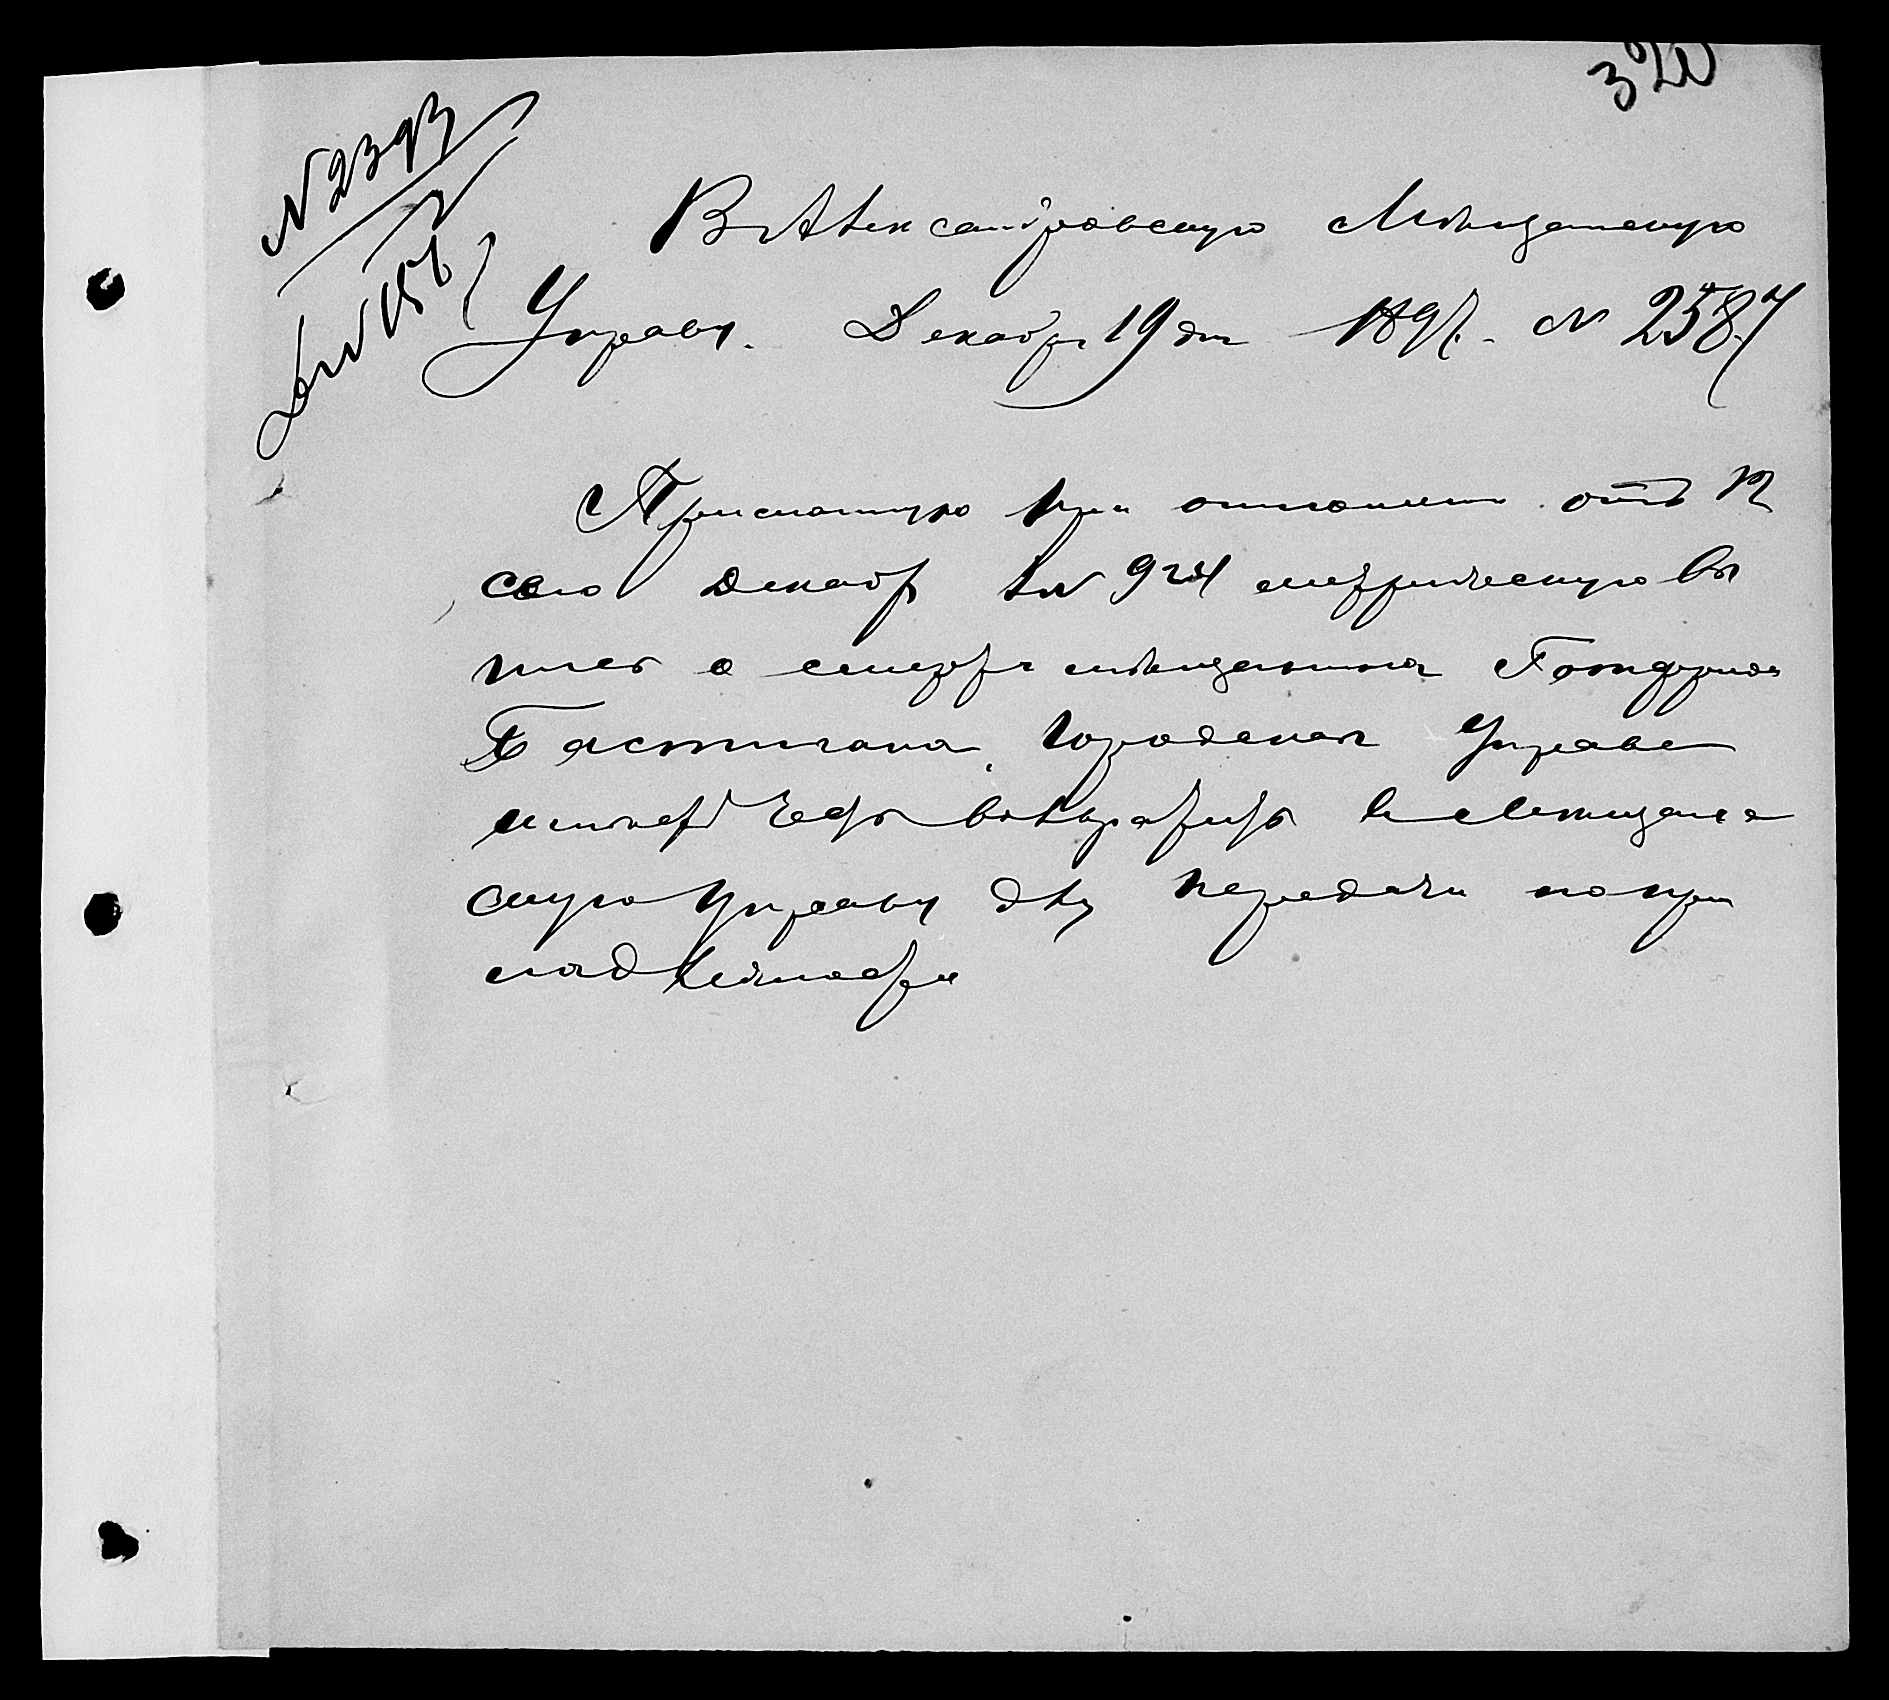 320
№ 2393
Въ Александровскую Мѣщанскую
Управу. Декабря 19 дня 1897. № 2587
Присланную при отношении отъ 12
сего Декабря за № 924 метрическую вы
пись о смерти мѣщанина Готфрида
Бастигана, Городская Управа
имѣетъ честь возвратить въ Мѣщанс
скую Управу для передачи по при
надлежности